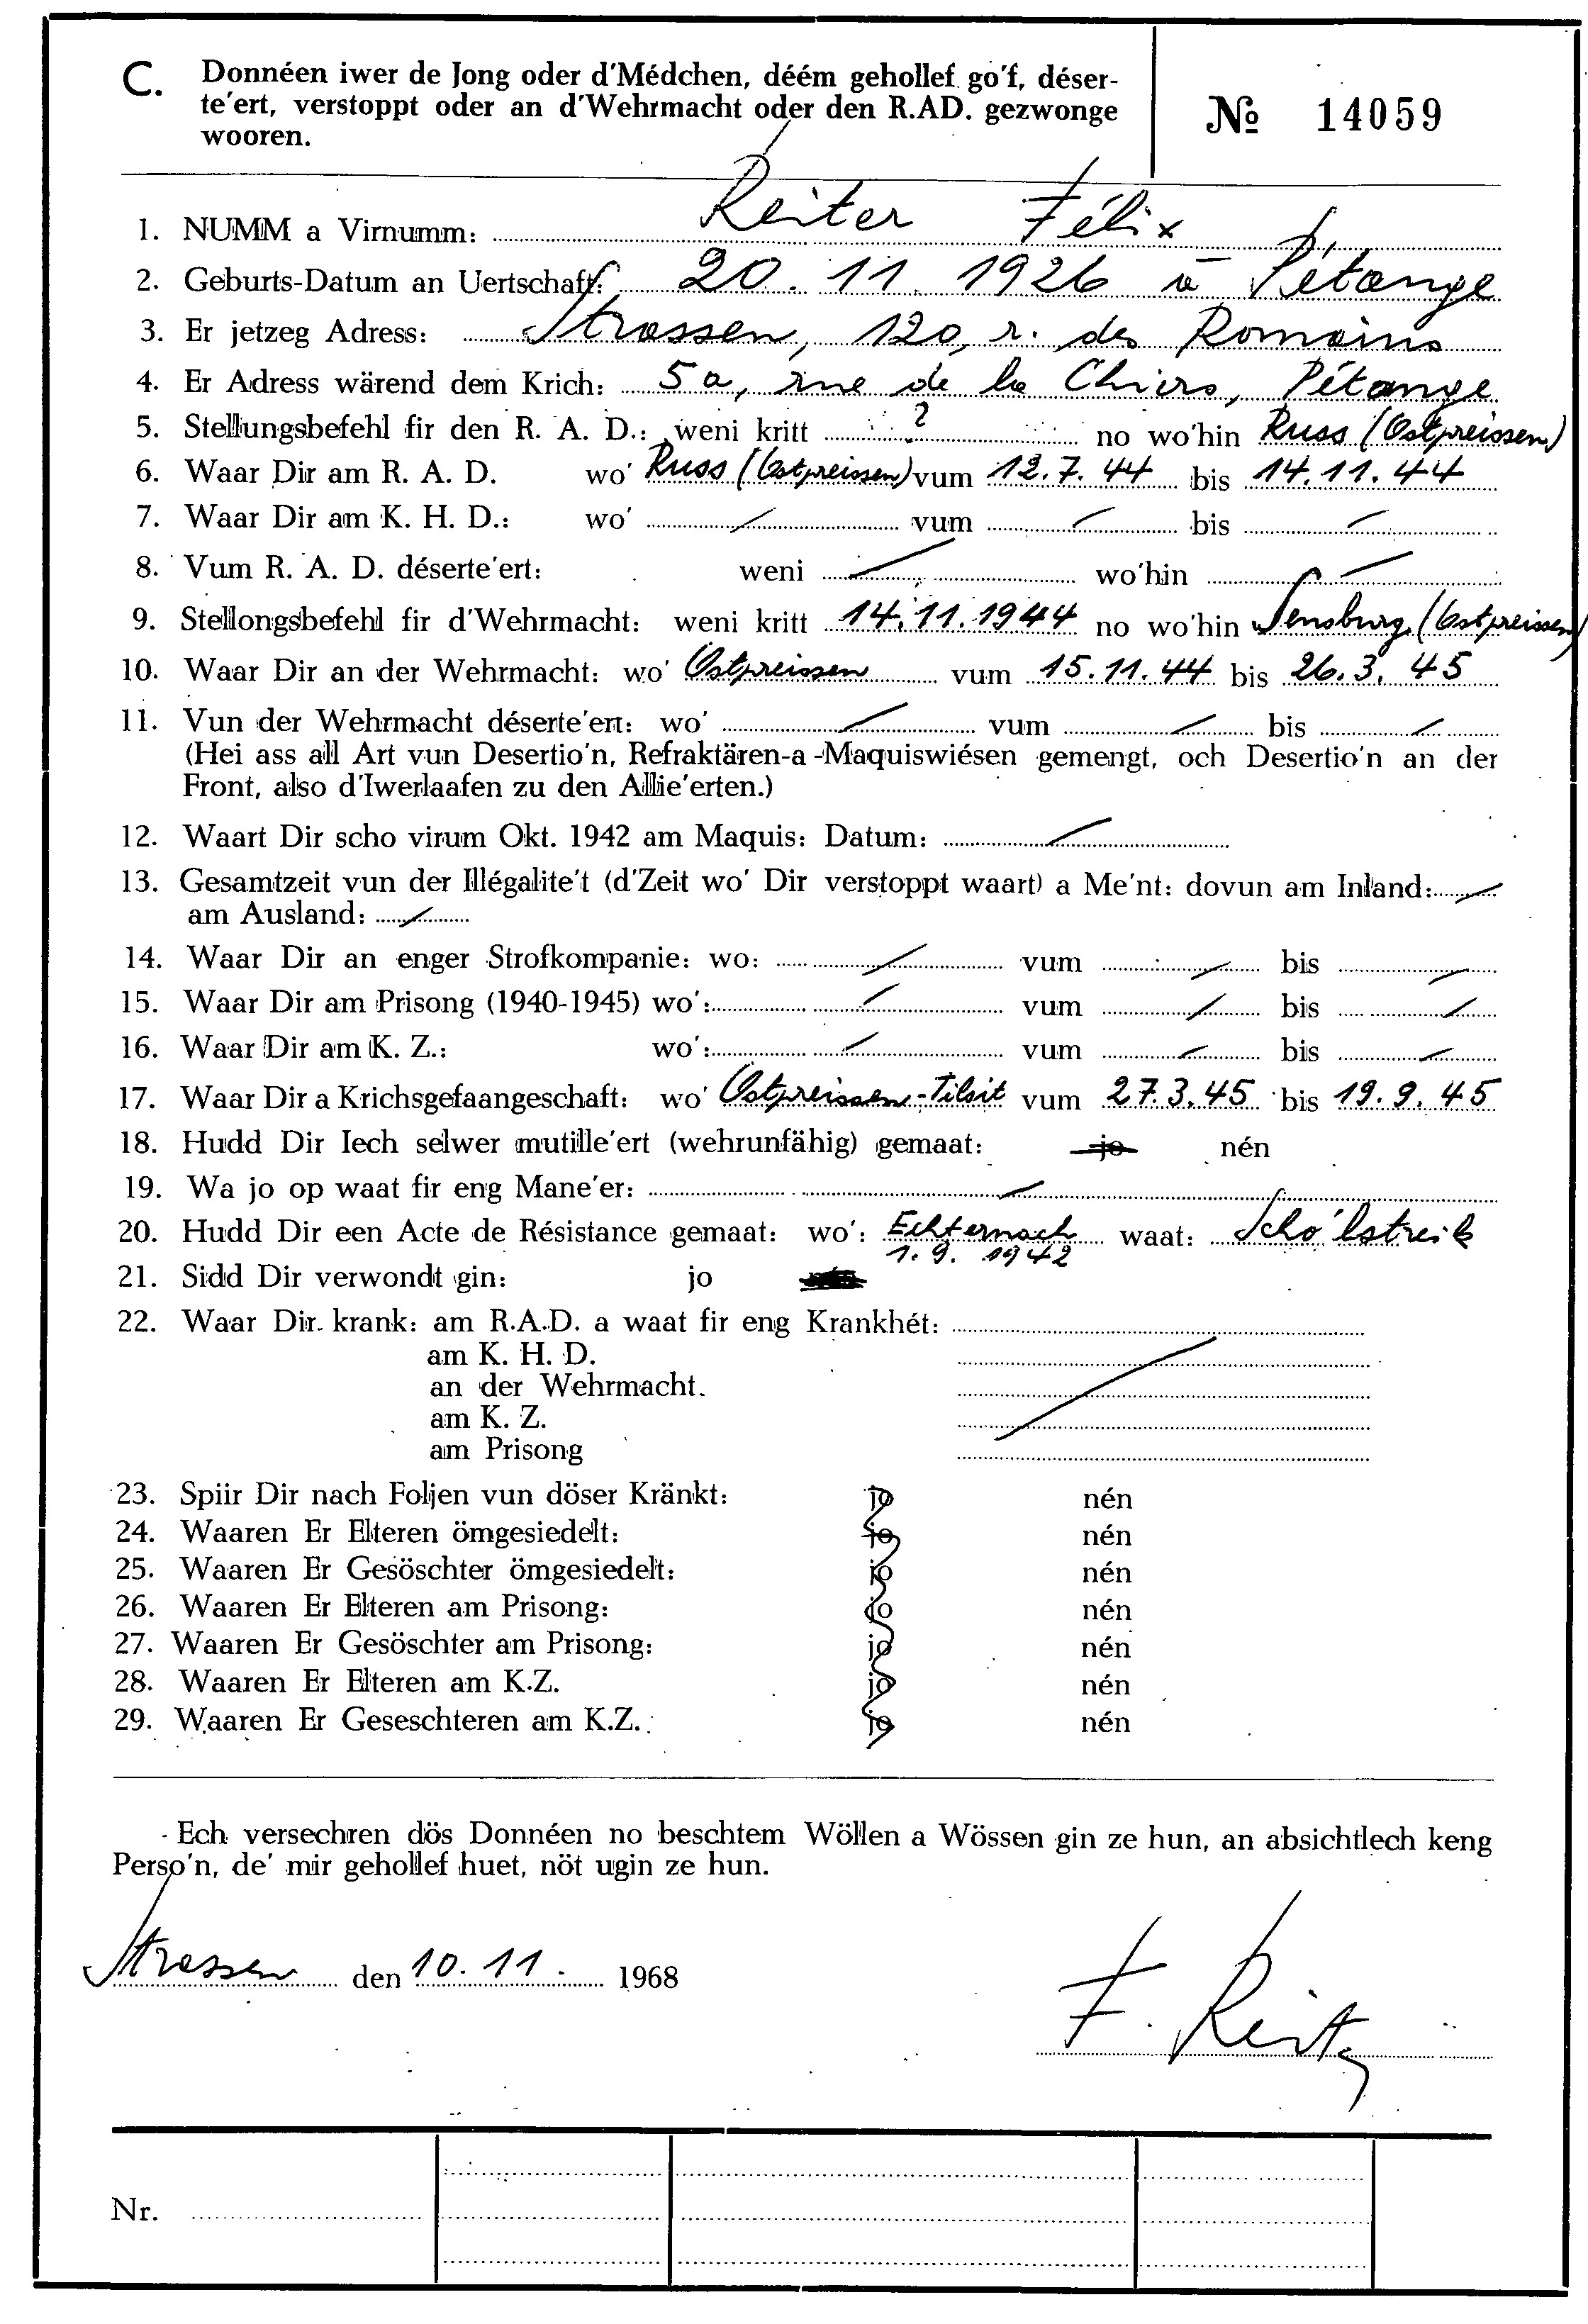 C. Donnéen iwer de Jong oder d'Médchen, déém gehollef go'f, déser-
te'ert, verstoppt oder an d'Wehrmacht oder den R.AD. gezwonge
wooren.
№ 14059
1. NUMM a Virnumm: Reiter Félix
2. Geburts-Datum an Uertschaft: 20. 11. 1926 à Pétange
3. Er jetzeg Adress: Strassen, 120, r. des Romains
4. Er Adress wärend dem Krich: 5a, rue de la Chiers, Pétange
5. Stellungsbefehl fir den R. A. D.: weni kritt ? no wo'hin Russ (Ostpreissen)
6. Waar Dir am R. A. D. wo' Russ (Ostpreissen) vum 12.7.44 bis 14.11.44
7. Waar Dir am K. H. D.: wo' / vum / bis /
8. Vum R. A. D. déserte'ert: weni / wo'hin /
9. Stellongsbefehl fir d'Wehrmacht: weni kritt 14.11.1944 no wo'hin Sensburg (Ostpreissen)
10. Waar Dir an der Wehrmacht: wo' Ostpreissen vum 15.11.44 bis 26.3.45
11. Vun der Wehrmacht déserte'ert: wo' / vum / bis /
(Hei ass all Art vun Desertio'n, Refraktären-a-Maquiswiésen gemengt, och Desertio'n an der
Front, also d'Iwerlaafen zu den Allie'erten.)
12. Waart Dir scho virum Okt. 1942 am Maquis: Datum: /
13. Gesamtzeit vun der Illégalite't (d'Zeit wo' Dir verstoppt waart) a Me'nt: dovun am Inland: /
am Ausland: /
14. Waar Dir an enger Strofkompanie: wo: / vum / bis /
15. Waar Dir am Prisong (1940-1945) wo': / vum / bis /
16. Waar Dir am K. Z.: wo': / vum / bis /
17. Waar Dir a Krichsgefaangeschaft: wo' Ostpreissen-Tilsit vum 27.3.45 bis 19.9.45
18. Hudd Dir Iech selwer mutille'ert (wehrunfähig) gemaat: jo nén
19. Wa jo op waat fir eng Mane'er: /
20. Hudd Dir een Acte de Résistance gemaat: wo': Echternach waat: Scho'lstreik
1.9.1942
21. Sidd Dir verwondt gin: jo nén
22. Waar Dir krank: am R.A.D. a waat fir eng Krankhét:
am K. H. D.
an der Wehrmacht.
am K. Z.
am Prisong
23. Spiir Dir nach Foljen vun döser Kränkt: jo nén
24. Waaren Er Elteren ömgesiedelt: jo nén
25. Waaren Er Gesöschter ömgesiedelt: jo nén
26. Waaren Er Elteren am Prisong: jo nén
27. Waaren Er Gesöschter am Prisong: jo nén
28. Waaren Er Elteren am K.Z. jo nén
29. Waaren Er Geseschteren am K.Z.: jo nén
Ech versechren dös Donnéen no beschtem Wöllen a Wössen gin ze hun, an absichtlech keng
Perso'n, de' mir gehollef huet, nöt ugin ze hun.
Strassen den 10. 11. 1968
F. Reiter
Nr.